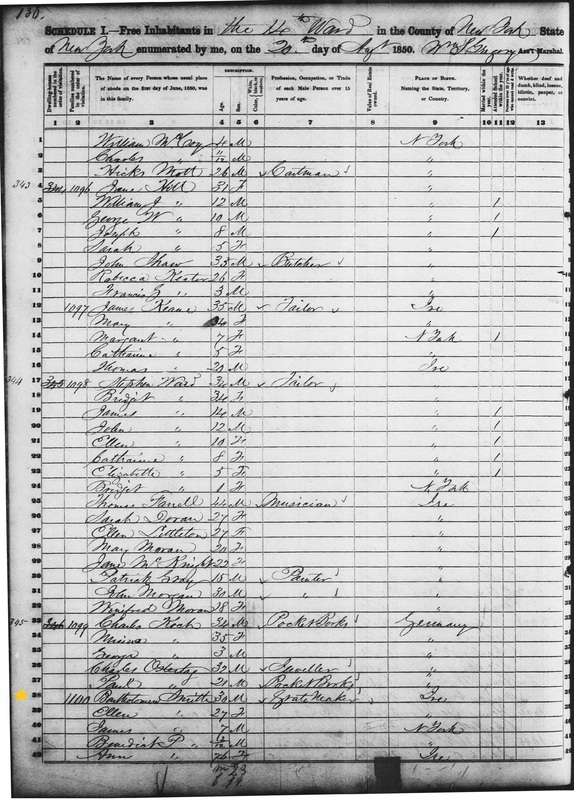 136.
SCHEDULE I.—Free Inhabitants in the 14th Ward in the County of New York State
of New York enumerated by me, on the 20th day of Augt 1850. Ass't Marshal.
DESCRIPTION.
Dwelling-houses numbered in the order of visitation. Families numbered in the order of visitation. The Name of every Person whose usual place of abode on the first day of June, 1850, was in this family. Age. Sex. Profession, Occupation, or Trade of each Male Person over 15 years of age. Value of Real Estate owned. PLACE OF BIRTH. Naming the State, Territory, or Country. Married within the year. Attended School within the year. Whether deaf and dumb, blind, insane, idiotic, pauper, or convict.
1 2 3 4 5 6 7 8 9 10 11 12 13
1 William McCoy 4 M N York
2 Charles " M "
3 Hicks Mott 26 M Cartman "
343 4 1096 Jane Hill 31 F "
5 William J " 12 M " 1
6 George W " 10 M " 1
7 Joseph " 8 M " 1
8 Sarah " 5 F "
9 John Shaw 35 M Butcher "
10 Rebecca 26 F "
11 Francis " 3 M "
12 1097 James Keane 35 M Tailor Ire
13 Mary " F "
14 Margaret " 7 F N York 1
15 Catharine " 5 F "
16 Thomas " 20 M Ire
344 17 345 1098 Stephen Ward 34 M Tailor "
18 Bridget " 34 F "
19 James " 14 M " 1
20 John " 12 M " 1
21 Ellen " 10 F " 1
22 Catharine " 8 F " 1
23 Elizabeth " 5 F " 1
24 Bridget " 1 F N. York
25 Thomas Farrell 44 M Musician Ire
26 Sarah Doran 27 F "
27 Ellen Littleton 27 F "
28 Mary Moran 20 F "
29 Jane McKnight 22 F "
30 Patrick Gray 15 M Painter "
31 John Morgan 30 M " "
32 Winifred Moran 18 F "
345 33 346 1099 Charles Koch 34 M Pocket Books Germany
34 " 35 F "
35 George " 3 M "
36 Charles 32 M Jeweller "
37 Paul " 21 M Pocket Books "
38 1100 Bartholomew Smith 30 M Grate Maker Ire
39 Ellen " 27 F "
40 James " 7 M N York
41 Benedick P " M "
42 Ann " 26 F Ire